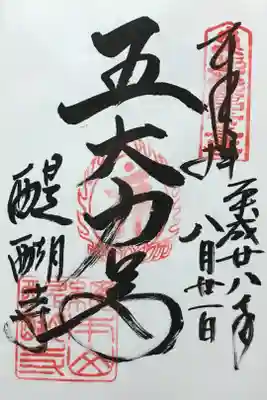 奉拝
平成廿八年
八月廿一日
五大力尊
醍醐寺